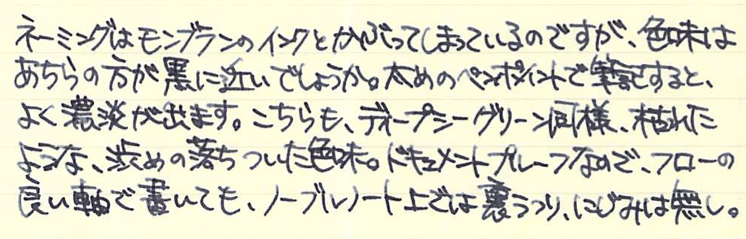 ネーミングはモンブランのインクとかぶってしまっているのですが、色味は
あちらの方が黒に近いでしょうか。太めのペンポイントで筆記すると、
よく濃淡が出ます。こちらも、ディープシーグリーン同様、枯れた
ような、渋めの落ちついた色味。ドキュメントプルーフなので、フローの
良い軸で書いても、ノーブルノート上では裏うつり、にじみは無し。